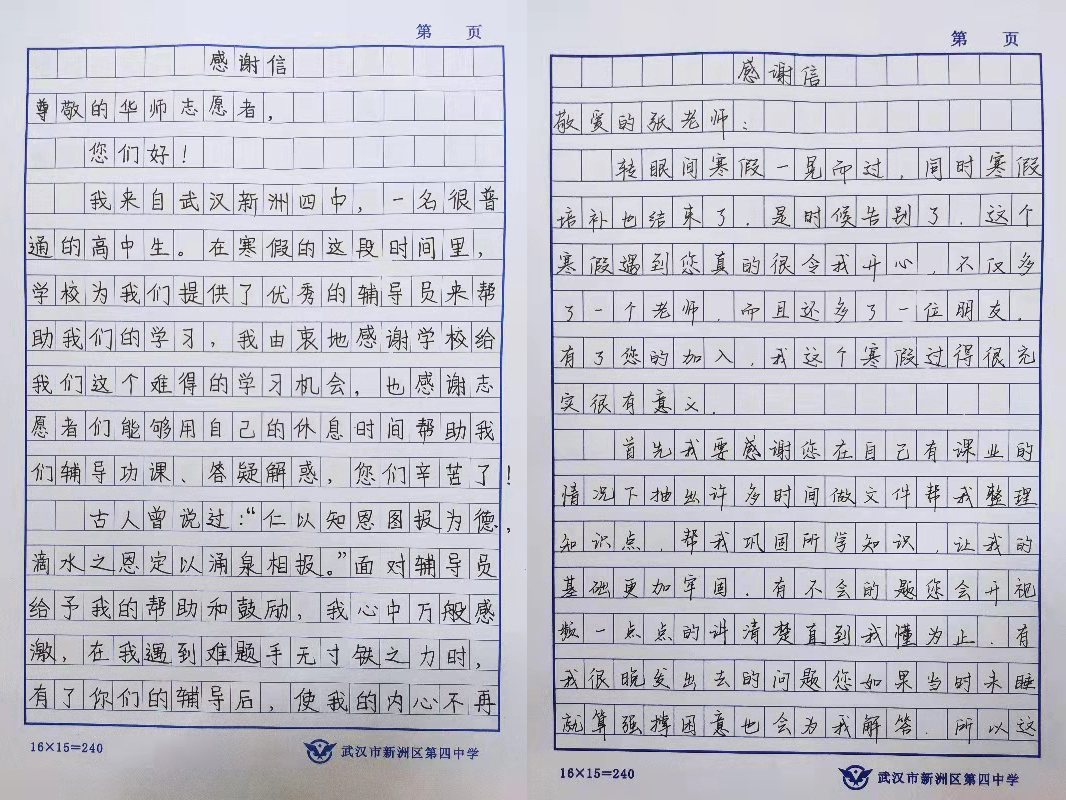 第 页
感谢信
尊敬的华师志愿者，
您们好！
我来自武汉新洲四中，一名很普
通的高中生。在寒假的这段时间里，
学校为我们提供了优秀的辅导员来帮
助我们的学习，我由衷地感谢学校给
我们这个难得的学习机会，也感谢志
愿者们能够用自己的休息时间帮助我
们辅导功课、答疑解惑，您们辛苦了！
古人曾说过：“仁以知恩图报为德，
滴水之恩定以涌泉相报。”面对辅导员
给予我的帮助和鼓励，我心中万般感
激，在我遇到难题手无寸铁之力时，
有了你们的辅导后，使我的内心不再
16×15=240
武汉市新洲区第四中学
第 页
感谢信
敬爱的张老师：
转眼间寒假一晃而过，同时寒假
培补也结束了．是时候告别了．这个
寒假遇到您真的很令我开心，不仅多
了一个老师，而且还多了一位朋友．
有了您的加入，我这个寒假过得很充
实很有意义．
首先我要感谢您在自己有课业的
情况下抽出许多时间做文件帮我整理
知识点，帮我巩固所学知识，让我的
基础更加牢固．有不会的题您会开视
频一点点的讲清楚直到我懂为止．有
我很晚发出去的问题您如果当时未睡
就算强撑困意也会为我解答．所以这
16×15=240
武汉市新洲区第四中学